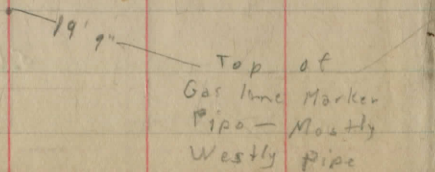 19' 9"
Top of
Gas line Marker
Pipe — Mostly
Westly Pipe